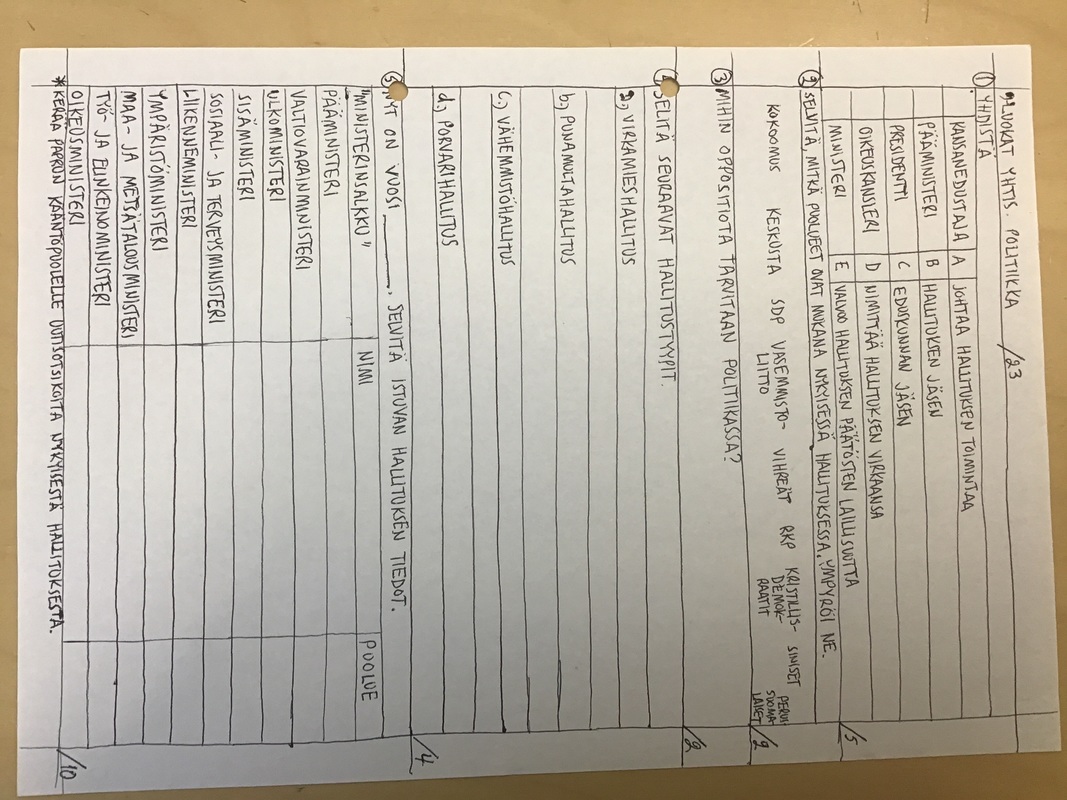 9.LUOKAT YHTS. POLITIIKKA /23
① YHDISTÄ
KANSANEDUSTAJA A JOHTAA HALLITUKSEN TOIMINTAA
PÄÄMINISTERI B HALLITUKSEN JÄSEN
PRESIDENTTI C EDUSKUNNAN JÄSEN
OIKEUSKANSLERI D NIMITTÄÄ HALLITUKSEN VIRKAANSA
MINISTERI E VALVOO HALLITUKSEN PÄÄTÖSTEN LAILLISUUTTA
/5
② SELVITÄ, MITKÄ PUOLUEET OVAT MUKANA NYKYISESSÄ HALLITUKSESSA. YMPYRÖI NE.
KOKOOMUS KESKUSTA SDP VASEMMISTO- VIHREÄT RKP KRISTILLIS- SINISET PERUS
LIITTO DEMOK- SUOMA-
RAATIT LAISET
/2
③ MIHIN OPPOSITIOTA TARVITAAN POLITIIKASSA?
/2
SELITÄ SEURAAVAT HALLITUSTYYPIT.
a, VIRKAMIESHALLITUS
b, PUNAMULTAHALLITUS
c, VÄHEMMISTÖHALLITUS
d, PORVARIHALLITUS
/4
5. NYT ON VUOSI ____, SELVITÄ ISTUVAN HALLITUKSEN TIEDOT.
"MINISTERINSALKKU" NIMI PUOLUE
PÄÄMINISTERI
VALTIOVARAINMINISTERI
ULKOMINISTERI
SISÄMINISTERI
SOSIAALI- JA TERVEYSMINISTERI
LIIKENNEMINISTERI
YMPÄRISTÖMINISTERI
MAA- JA METSÄTALOUSMINISTERI
TYÖ- JA ELINKEINOMINISTERI
OIKEUSMINISTERI
/10
*KERÄÄ PAPRUN KÄÄNTÖPUOLELLE UUTISOTSIKOITA NYKYISESTÄ HALLITUKSESTA.